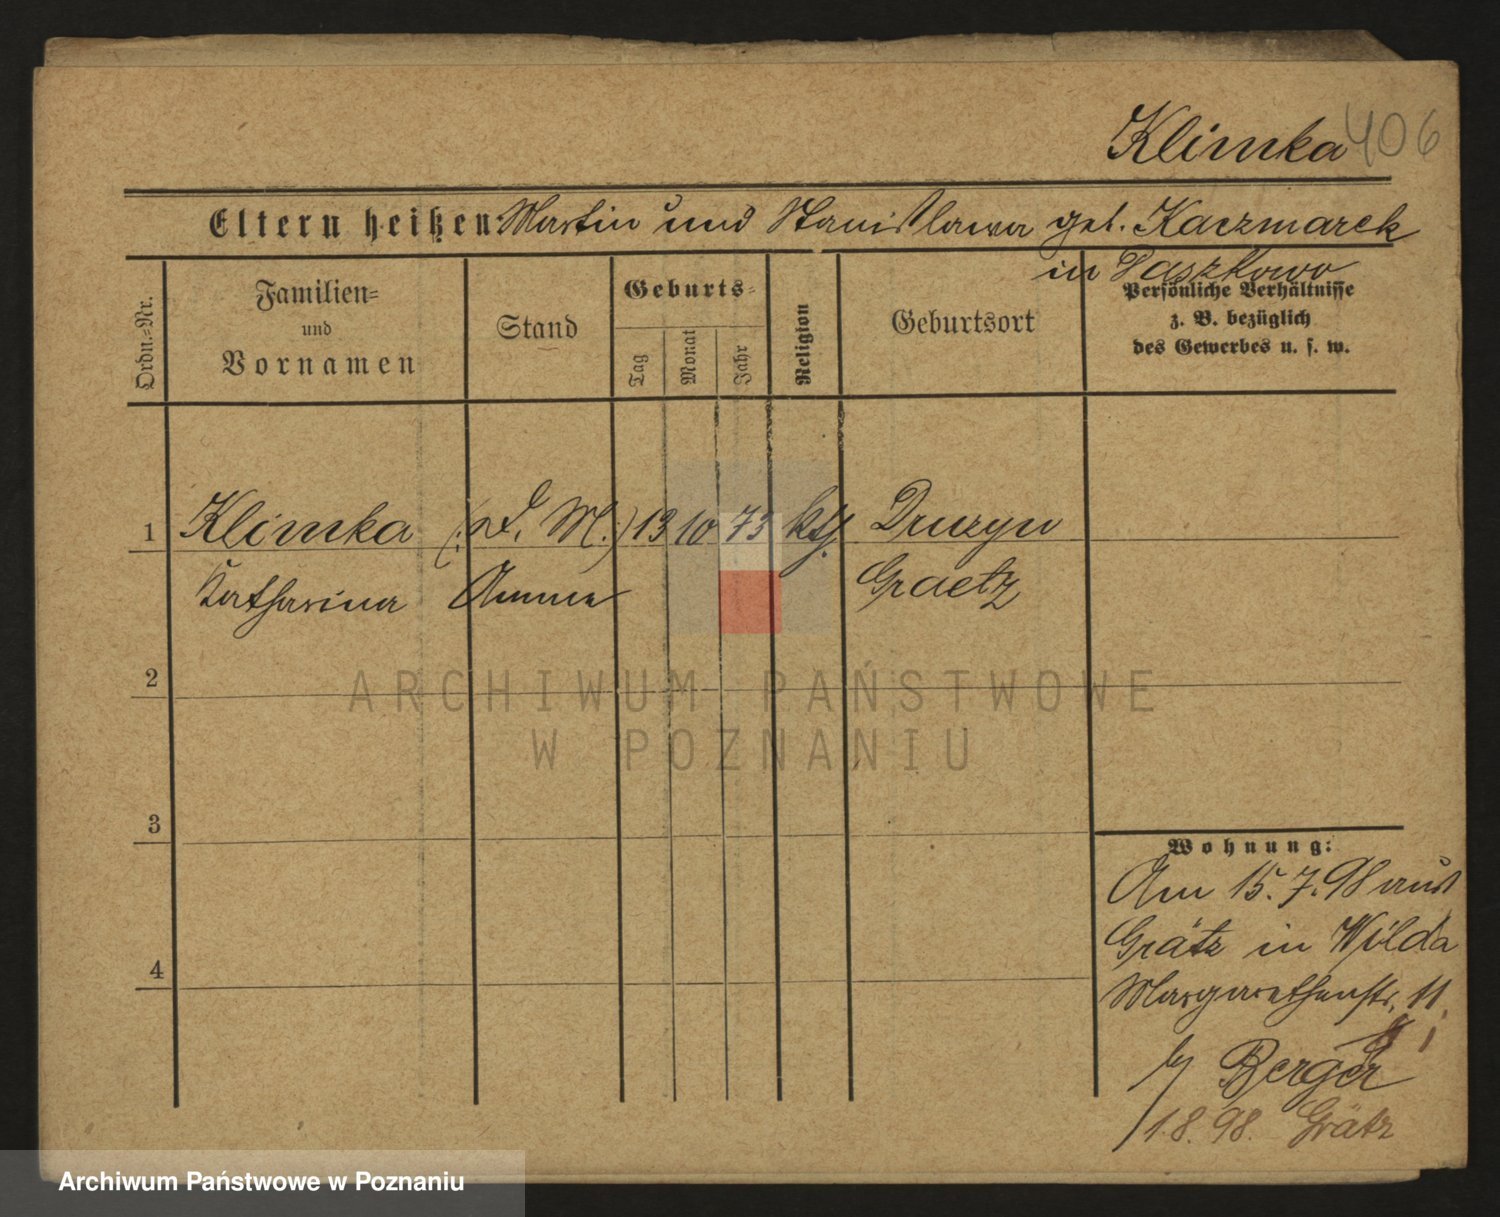 Klimka 406
Eltern heißen: Martin und Stanislawa geb. Kaczmarek
in Paszkowo
Ordn.-Nr.
Familien-
und
Vornamen
Stand
Geburts-
Tag
Monat
Jahr
Religion
Geburtsort
Persönliche Verhältnisse
z. B. bezüglich
des Gewerbes u. s. w.
1 Klimka (: d. M. :) 13 10 73 kth. Druzyn
Katharina Amme Graetz
2
3
4
Wohnung:
Am 15.7.98 aus
Grätz in Wilda
Margarethenstr. 11.
by Berger
1.8.98. Grätz
ARCHIWUM PAŃSTWOWE
W POZNANIU
Archiwum Państwowe w Poznaniu